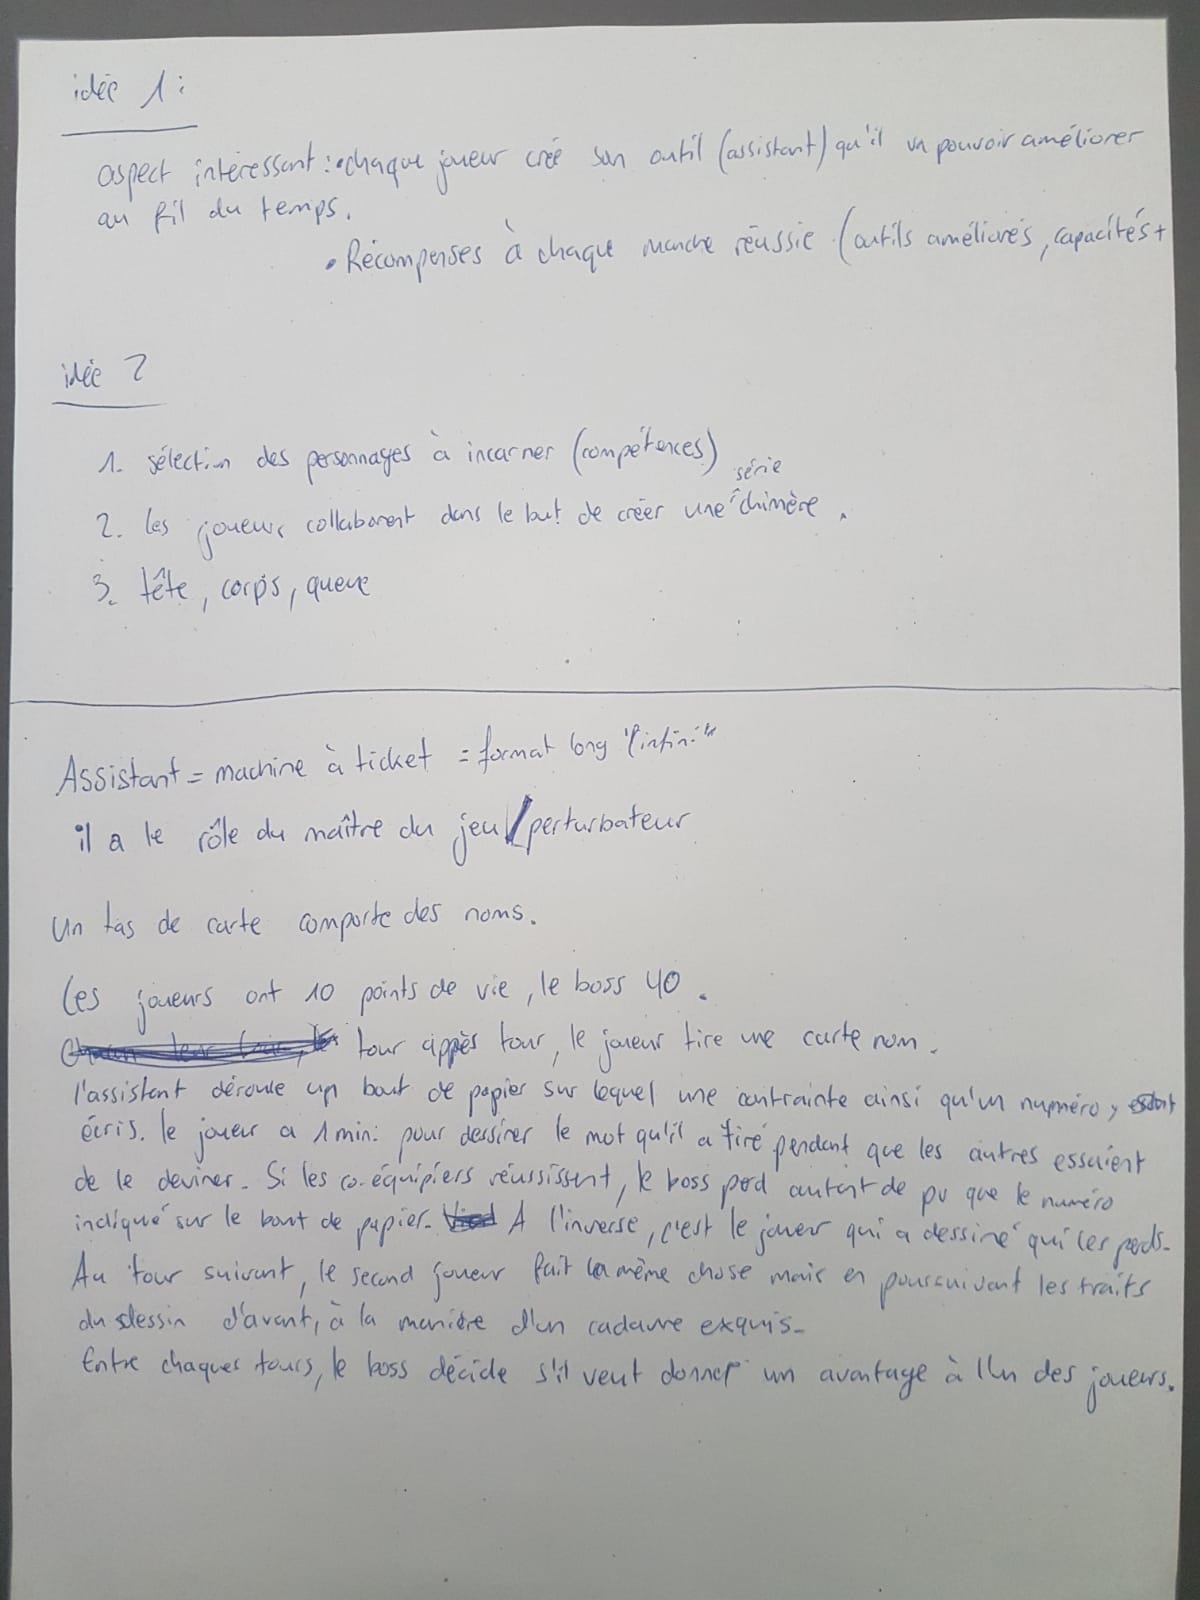 idée 1:
aspect intéressant: • chaque joueur crée son outil (assistant) qu'il va pouvoir améliorer
au fil du temps.
• Récompenses à chaque manche réussie (outils améliorés, capacités +
idée 2
1. sélection des personnages à incarner (compétences)
série
2. les joueurs collaborent dans le but de créer une chimère.
3. tête, corps, queue
Assistant = machine à ticket = format long "infini"
il a le rôle du maître du jeu/perturbateur
Un tas de carte comporte des noms.
Les joueurs ont 10 points de vie, le boss 40.
tour après tour, le joueur tire une carte nom.
l'assistent déroule un bout de papier sur lequel une contrainte ainsi qu'un numéro y
écris. le joueur a 1 min: pour dessiner le mot qu'il a tiré pendant que les autres essaient
de le deviner. Si les co-équipiers réussissent, le boss perd autant de pv que le numéro
indiqué sur le bout de papier. A l'inverse, c'est le joueur qui a dessiné qui les perds.
Au tour suivant, le second joueur fait la même chose mais en poursuivant les traits
du dessin d'avant, à la manière d'un cadavre exquis.
Entre chaques tours, le boss décide s'il veut donner un avantage à l'un des joueurs.